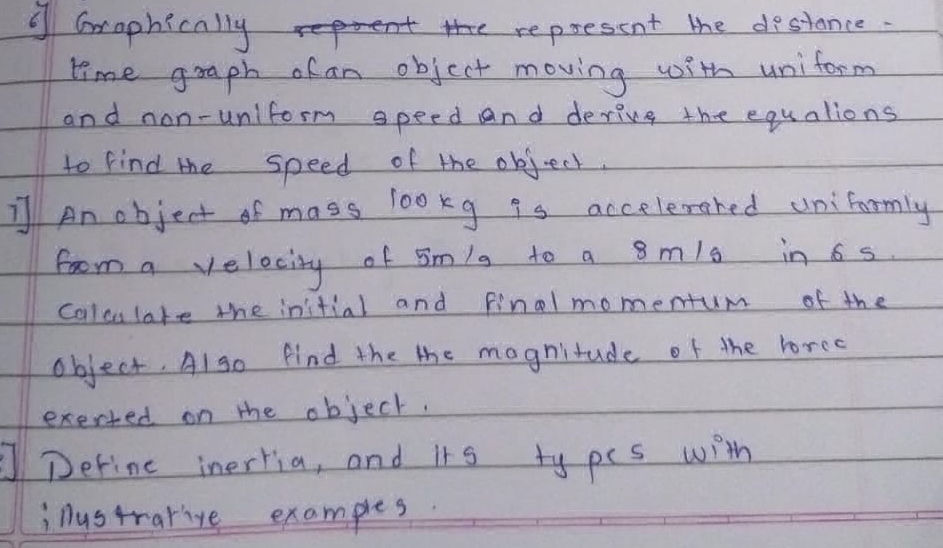 6] Graphically repoent the represent the distance -
time graph of an object moving with uniform
and non-uniform speed and derive the equations
to find the speed of the object.
7] An object of mass 100 kg is accelerated uniformly
from a velocity of 5m/s to a 8 m/s in 6 s.
Calculate the initial and final momentum of the
object. Also find the the magnitude of the force
exerted on the object.
] Define inertia, and its types with
illustrative examples.